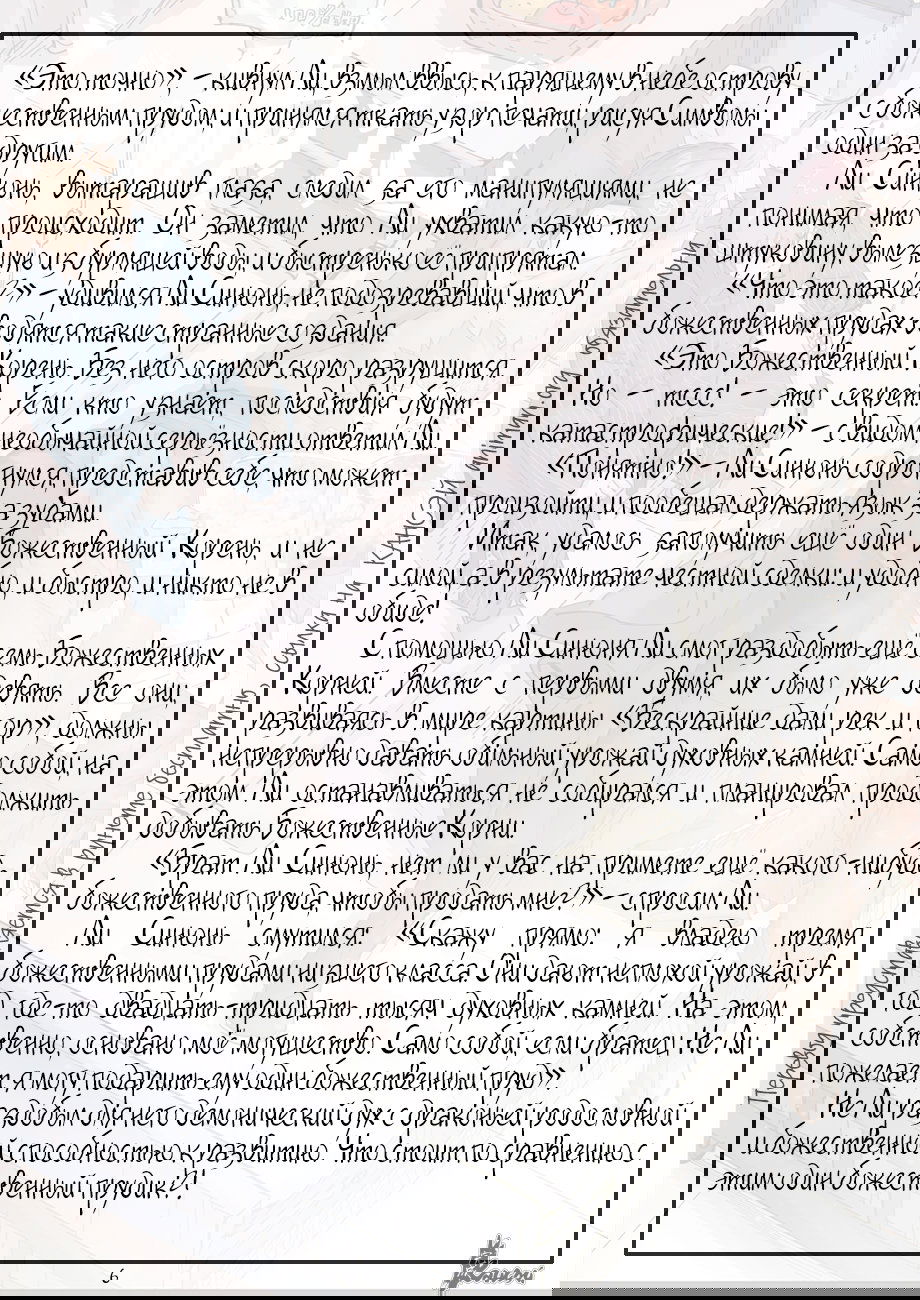 «Это точно», – кивнул Ли, взмыл ввысь, к парящему в небе острову
с божественным прудом, и принялся ткать узор печати, рисуя Символы
один за другим.
Ли Синнюнь, вытаращив глаза, следил за его манипуляциями, не
понимая, что происходит. Он заметил, что Ли ухватил какую-то
штуковину, вылезшую из бурлящей воды, и быстренько её припрятал.
«Что это такое?» – удивился Ли Синнюнь, не подозревавший, что в
божественных прудах водятся такие странные создания.
«Это Божественный Корень. Без него остров скоро разрушится.
Но – тссс! – это секрет. Если кто узнает, последствия будут
катастрофические!» – с видом необычайной серьёзности ответил Ли.
«Понятно!» – Ли Синнюнь содрогнулся, представив себе, что может
произойти, и пообещал держать язык за зубами.
Итак, удалось заполучить ещё один Божественный Корень, и не
силой, а в результате честной сделки: и удобно, и быстро, и никто не в
обиде!
С помощью Ли Синнюня Ли смог раздобыть ещё семь Божественных
Корней. Вместе с первыми двумя их было уже девять. Все они,
развиваясь в мире картины «Бескрайние дали рек и гор», должны
непрерывно давать обильный урожай духовных камней. Само собой, на
этом Ли останавливаться не собирался и планировал продолжить
добывать Божественные Корни.
«Брат Ли Синнюнь, нет ли у вас на примете ещё какого-нибудь
божественного пруда, чтобы продать мне?» – спросил Ли.
Ли Синнюнь смутился: «Скажу прямо: я владею тремя
божественными прудами низшего класса. Они дают неплохой урожай, в
год где-то двадцать-тридцать тысяч духовных камней. На этом,
собственно, основано моё могущество. Само собой, если братец Не Ли
пожелает, я могу подарить ему один божественный пруд?»
Не Ли уже раздобыл для него демонический дух с драконьей родословной
и божественной способностью к развитию. Что стоит по сравнению с
этим один божественный прудик?!
Перевод несли выполняется в рулейте бесплатно. Ссылки ни
6